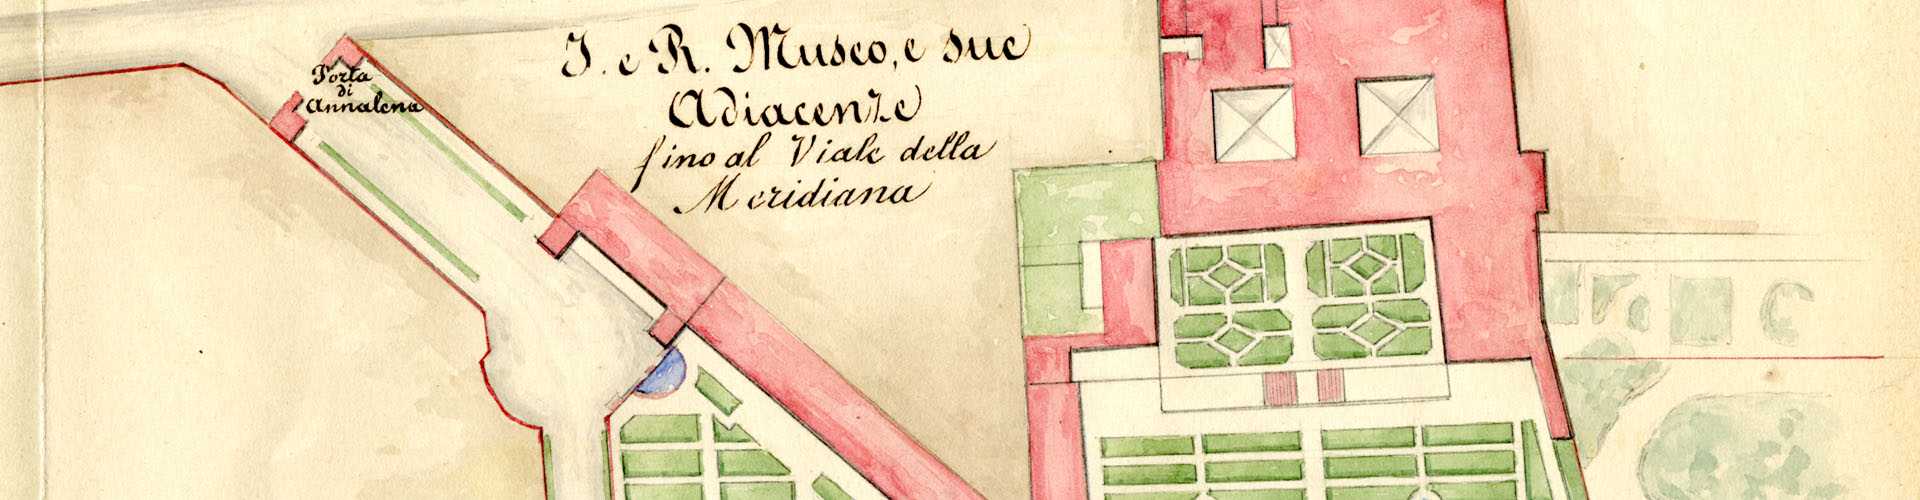 I. e R. Museo, e sue
Adiacenze
fino al Viale della
Meridiana
Porta
di
Annalena